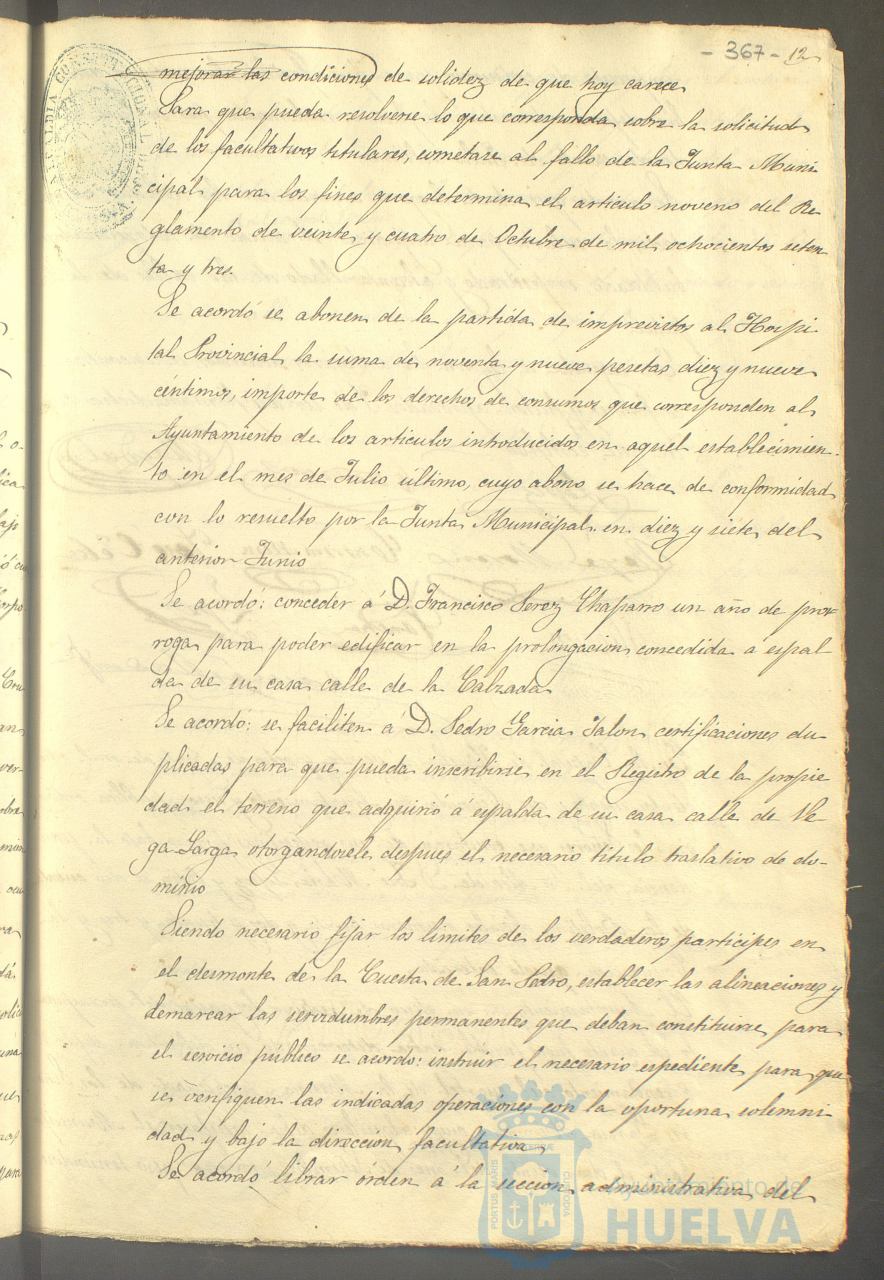 - 367 - 12
mejorar las condiciones de solidez de que hoy carece
Para que pueda resolverse lo que corresponda sobre la solicitud
de los facultativos titulares, sometase al fallo de la Junta Muni
cipal para los fines que determina el articulo noveno del Re
glamento de veinte y cuatro de Octubre de mil ochocientos seten
ta y tres.
Se acordó se abonen de la partida de imprevistos al Hospi
tal Provincial la suma de noventa y nueve pesetas diez y nueve
céntimos, importe de los derechos de consumos que corresponden al
Ayuntamiento de los articulos introducidos en aquel establecimien-
to en el mes de Julio último, cuyo abono se hace de conformidad
con lo resuelto por la Junta Municipal en diez y siete del
anterior Junio
Se acordó: conceder á D. Francisco Perez Chaparro un año de pror-
roga para poder edificar en la prolongacion concedida a espal
da de su casa calle de la Calzada
Se acordó: se faciliten á D. Pedro Garcia Jalon certificaciones du-
plicadas para que pueda inscribirse en el Registro de la propie
dad el terreno que adquirió á espalda de su casa calle de Ve
ga Larga otorgandosele despues el necesario titulo traslativo de do-
minio
Siendo necesario fijar los limites de los verdaderos participes en
el desmonte de la Cuesta de San Pedro, establecer las alineaciones y
demarcar las servidumbres permanentes que deban constituirse para
el servicio público se acordo: instruir el necesario espediente para que
se verifiquen las indicadas operaciones con la oportuna solemni
dad y bajo la direccion facultativa
Se acordó librar órden á la seccion administrativa del
Ayuntamiento de
HUELVA
PORTUS MARIS
CUSTODIA